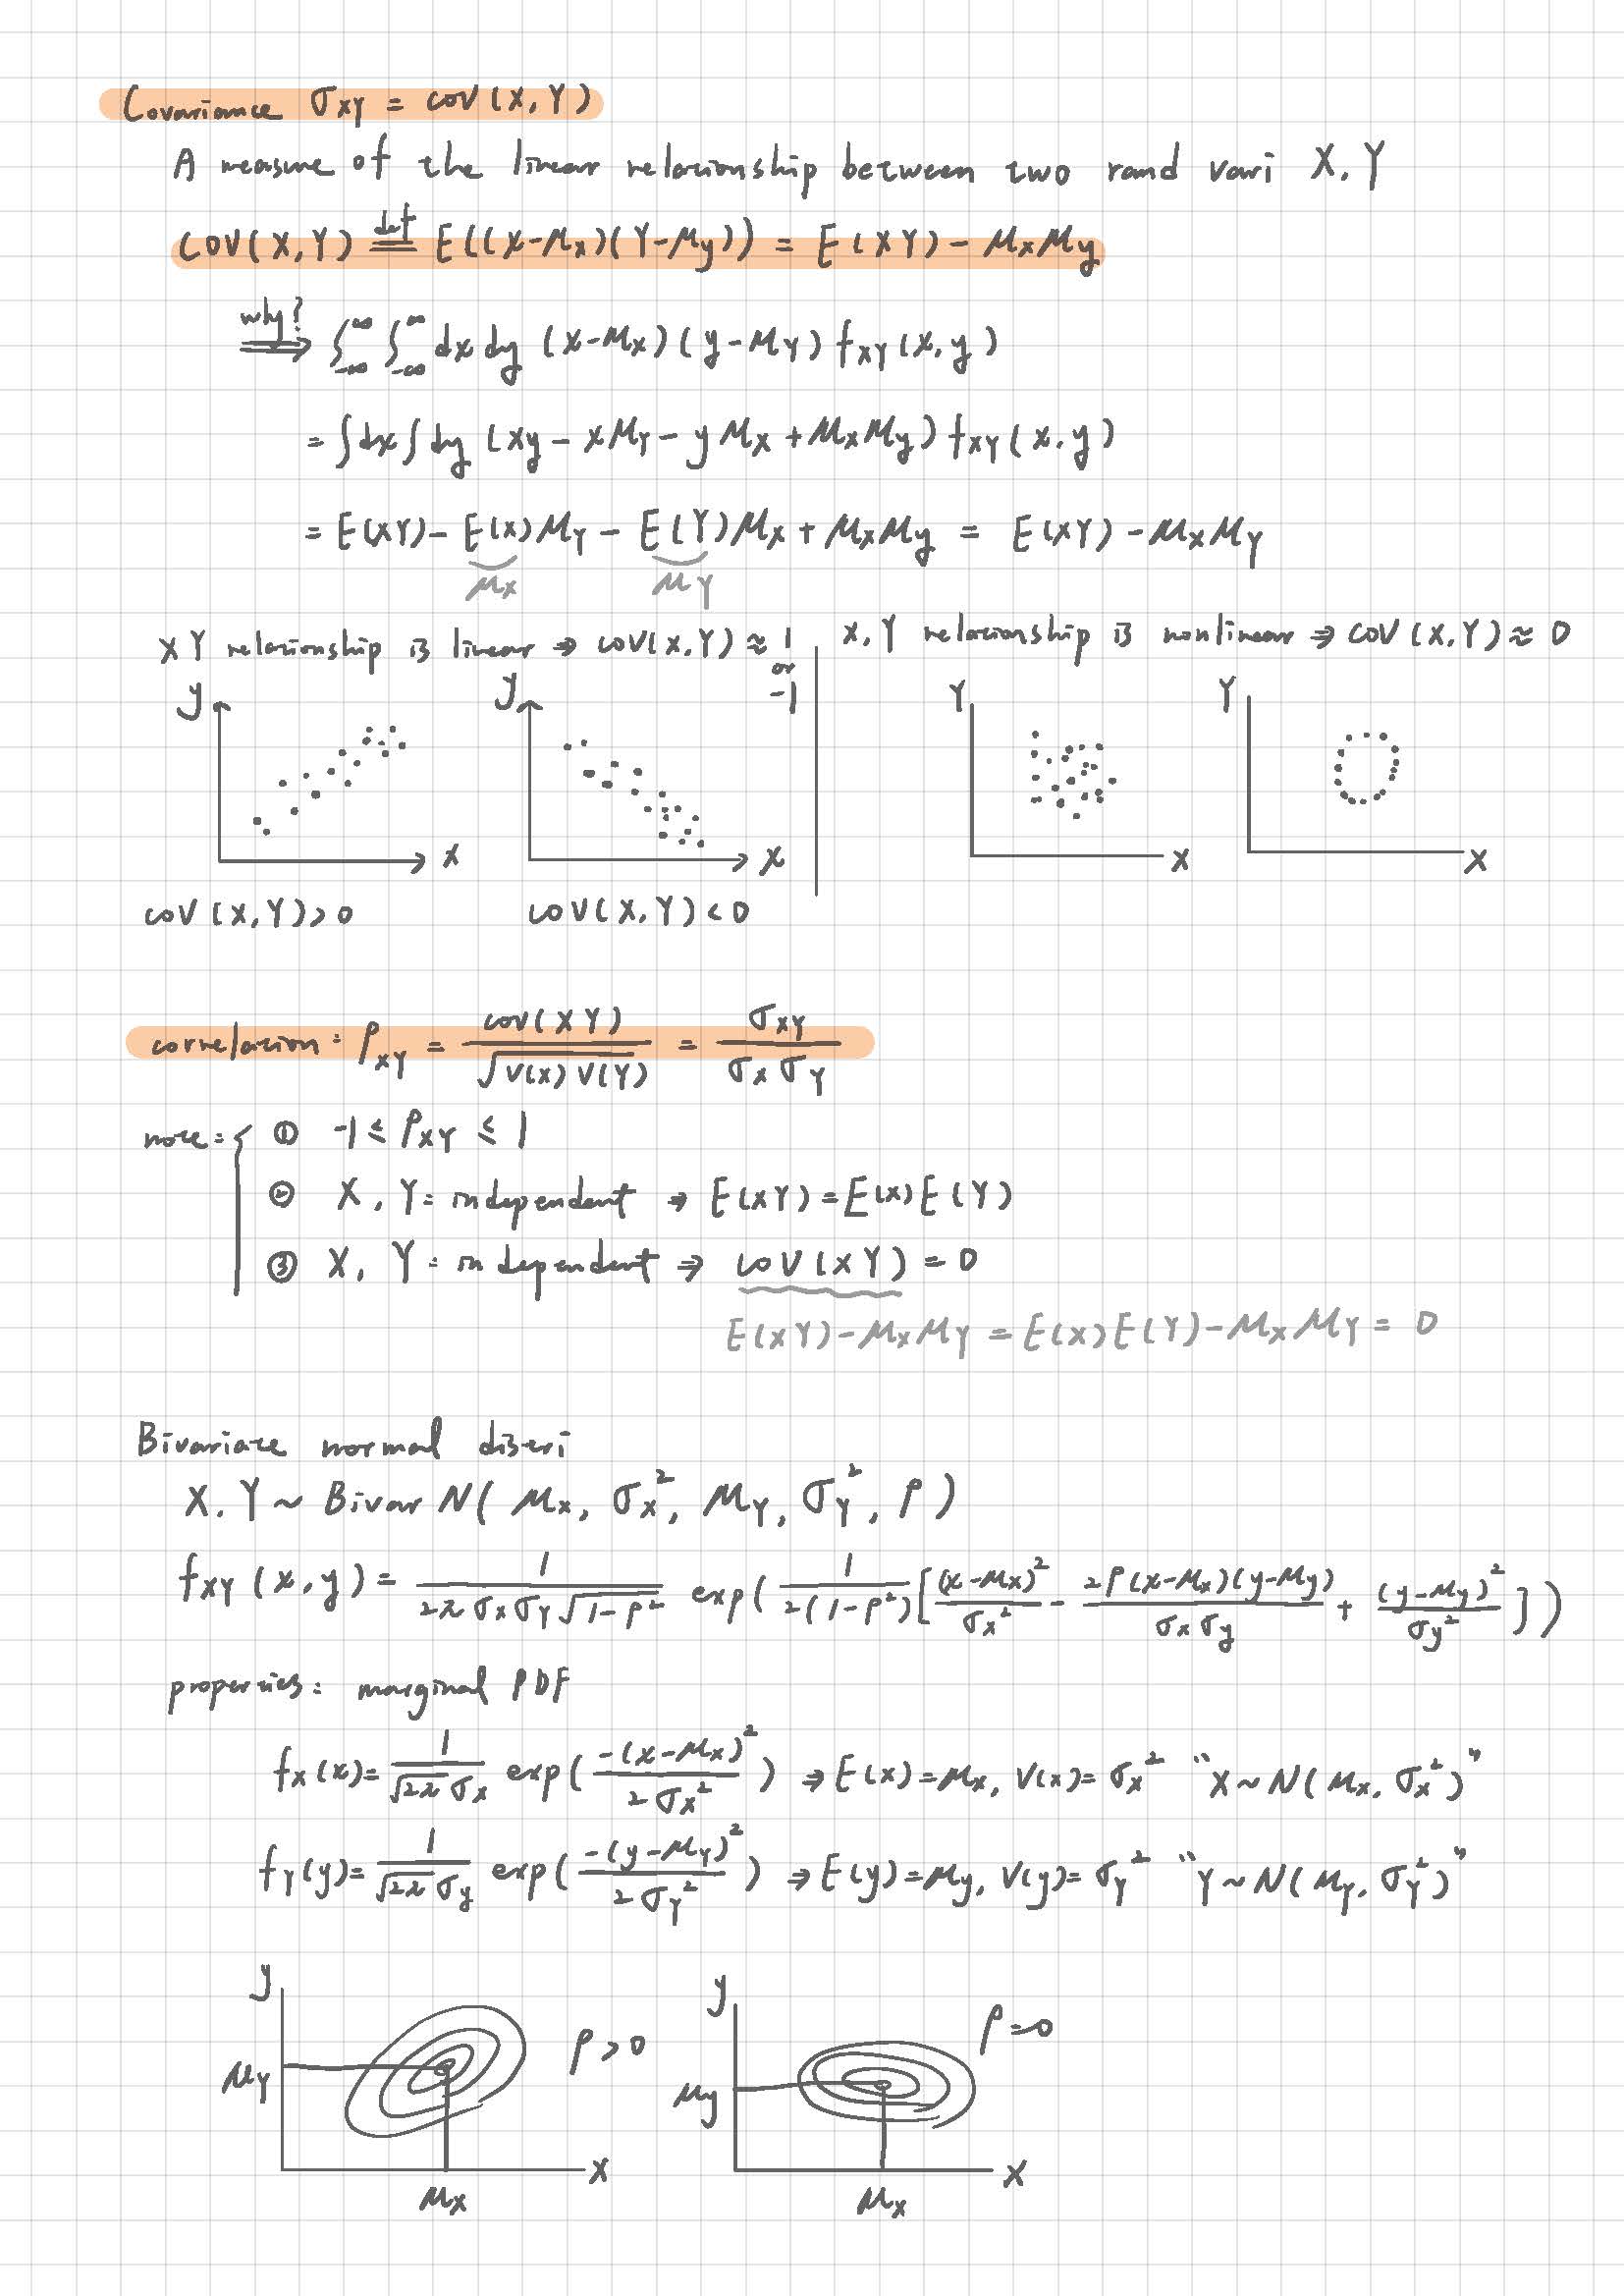 Covariance σ_XY = cov(X,Y)
A measure of the linear relationship between two rand vari X, Y
COV(X,Y) def= E((X-μx)(Y-μy)) = E(XY) - μxμy
why? ⇒ ∫_-∞^∞ ∫_-∞^∞ dx dy (x-μx)(y-μY) fXY(x,y)
= ∫dx∫dy (xy - xμY - yμx + μxμy) fXY(x,y)
= E(XY) - E(x)μY - E(Y)μx + μxμy = E(XY) - μxμY
μx μY
XY relationship is linear ⇒ cov(x,Y) ≈ 1 or -1
x,Y relationship is nonlinear ⇒ COV(X,Y) ≈ 0
y y Y Y
x x x x
COV(X,Y) > 0 COV(X,Y) < 0
correlation: ρ_XY = cov(XY) / √(V(x)V(Y)) = σ_XY / (σx σY)
note: { ① -1 ≤ ρXY ≤ 1
② X, Y = independent ⇒ E(XY) = E(x)E(Y)
③ X, Y = independent ⇒ COV(XY) = 0
E(XY) - μxμY = E(x)E(Y) - μxμY = 0
Bivariate normal distri
X, Y ~ Bivar N( μx, σx², μY, σY², ρ )
fXY(x,y) = 1 / (2π σx σY √(1-ρ²)) exp( 1 / (2(1-ρ²)) [ (x-μx)²/σx² - 2ρ(x-μx)(y-μy)/(σx σy) + (y-μy)²/σy² ] )
properties: marginal PDF
fx(x) = 1 / (√2π σx) exp( -(x-μx)² / 2σx² ) ⇒ E(x) = μx, V(x) = σx² "X ~ N(μx, σx²)"
fY(y) = 1 / (√2π σy) exp( -(y-μY)² / 2σY² ) ⇒ E(y) = μy, V(y) = σY² "Y ~ N(μY, σY²)"
y ρ > 0 y ρ = 0
μY μy
x x
μx μx